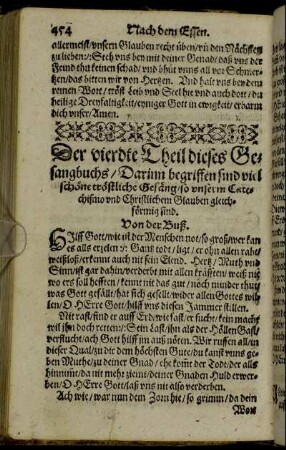 454 Nach dem Essen.
allermeist/ vnsern Glauben recht üben/ vñ den Nächsten
zu lieben/: Steh vns bey mit deiner Genad/ daß vns der
Feind thu keinen schad/ vnd bhüt vnns all vor Schmer-
tzen/ das bitten wir von Hertzen. Vnd halt vns bey dem
reinen Wort/ tröst Leib vnd Seel hie vnd auch dort/ du
heilige Dreyfaltigkeit/ einiger Gott in ewigkeit/ erbarm
dich vnser/ Amen.
Der vierdte Theil dieses Ge-
sangbuchs/ Darinn begriffen sind viel
schöne tröstliche Gesäng/ so vnserm Cate-
chismo vnd Christlichem Glauben gleich-
förmig sind.
Von der Buß.
HIlff Gott/ wie ist der Menschen not/ so groß/ wer kan
es alls erzelen? Gantz todt/ ligt/ er ohn allen raht/
weißloß/ erkennt auch nit sein Elend. Hertz/ Muth vnd
Sinn/ ist gar dahin/ verderbt mit allen kräfften/ weiß nit
wo ers soll hefften/ kennt nit das gut/ noch minder thut/
was Gott gefällt/ hat sich gesellt/ wider allen Gottes wil-
len/ O HErre Gott/ hilff vns diesen Jammer stillen.
Nit rast/ find er auff Erd/ wie fast/ er sucht/ kein mache
wil ihn doch retten/: Sein Last/ ihn als der Höllen Gast/
verflucht/ ach Gott hilff im auß nöten. Wir ruffen all/ in
dieser Qual/ zu dir dem höchsten Gute/ du kanst vnns ge-
ben Muthe/ zu deiner Gnad/ ehe komt der Tod/ der alls
hinnimt/ da nit mehr ziemt/ deiner Gnaden Huld erwer-
ben/ O HErre Gott/ laß vns nit also verderben.
Ach wie/ war nun dem Zorn hie/ so grimm/ da dein
Wort